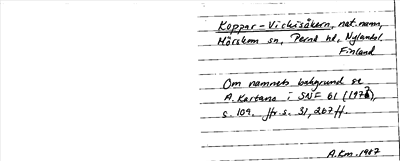 Koppar-Vickisåkern, nat.namn,
Mörskom sn, Pernå hd, Nyland.
Finland
Om namnets bakgrund se
A. Kartano i SNF 61 (1973),
s. 109. Jfr s. 31, 267 ff.
A.Km. 1987